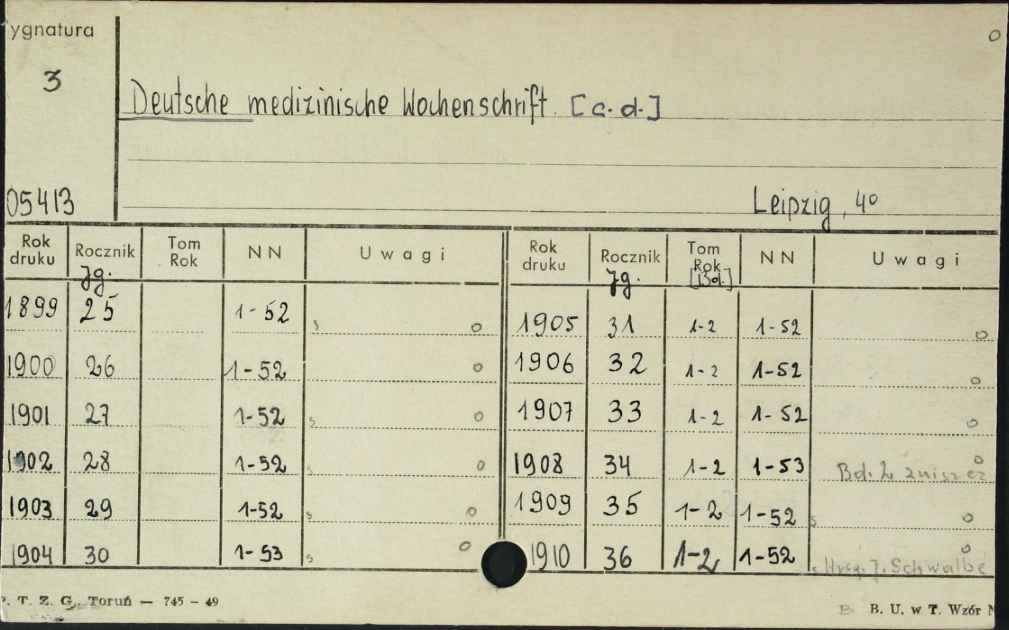 ygnatura
3
Deutsche medizinische Wochenschrift [c. d.]
05413
Leipzig, 4°
Rok druku Rocznik Jg. Tom Rok NN Uwagi
1899 25 1-52 s o
1900 26 1-52 o
1901 27 1-52 s o
1902 28 1-52 s o
1903 29 1-52 s o
1904 30 1-53 s o
Rok druku Rocznik Jg. Tom Rok [Bd.] NN Uwagi
1905 31 1-2 1-52 o
1906 32 1-2 1-52 o
1907 33 1-2 1-52 o
1908 34 1-2 1-53 Bd. 2 zniszcz o
1909 35 1-2 1-52 s o
1910 36 1-2 1-52 s Hrsg. J. Schwalbe o
. T. Z. G. Toruń — 745 - 49
B. U. w T. Wzór N